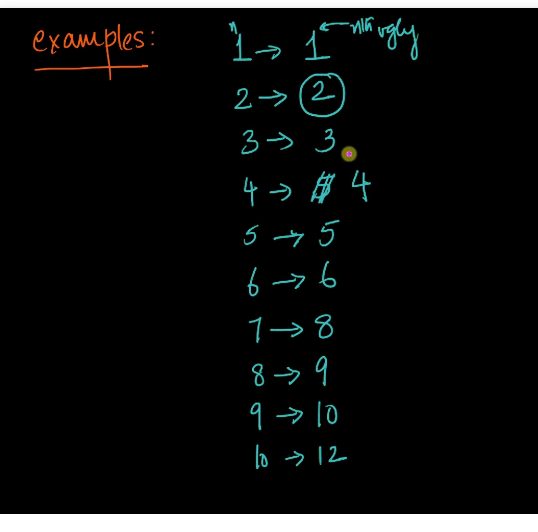 examples:
n
1 → 1 ← nth ugly
2 → 2
3 → 3
4 → 4
5 → 5
6 → 6
7 → 8
8 → 9
9 → 10
10 → 12